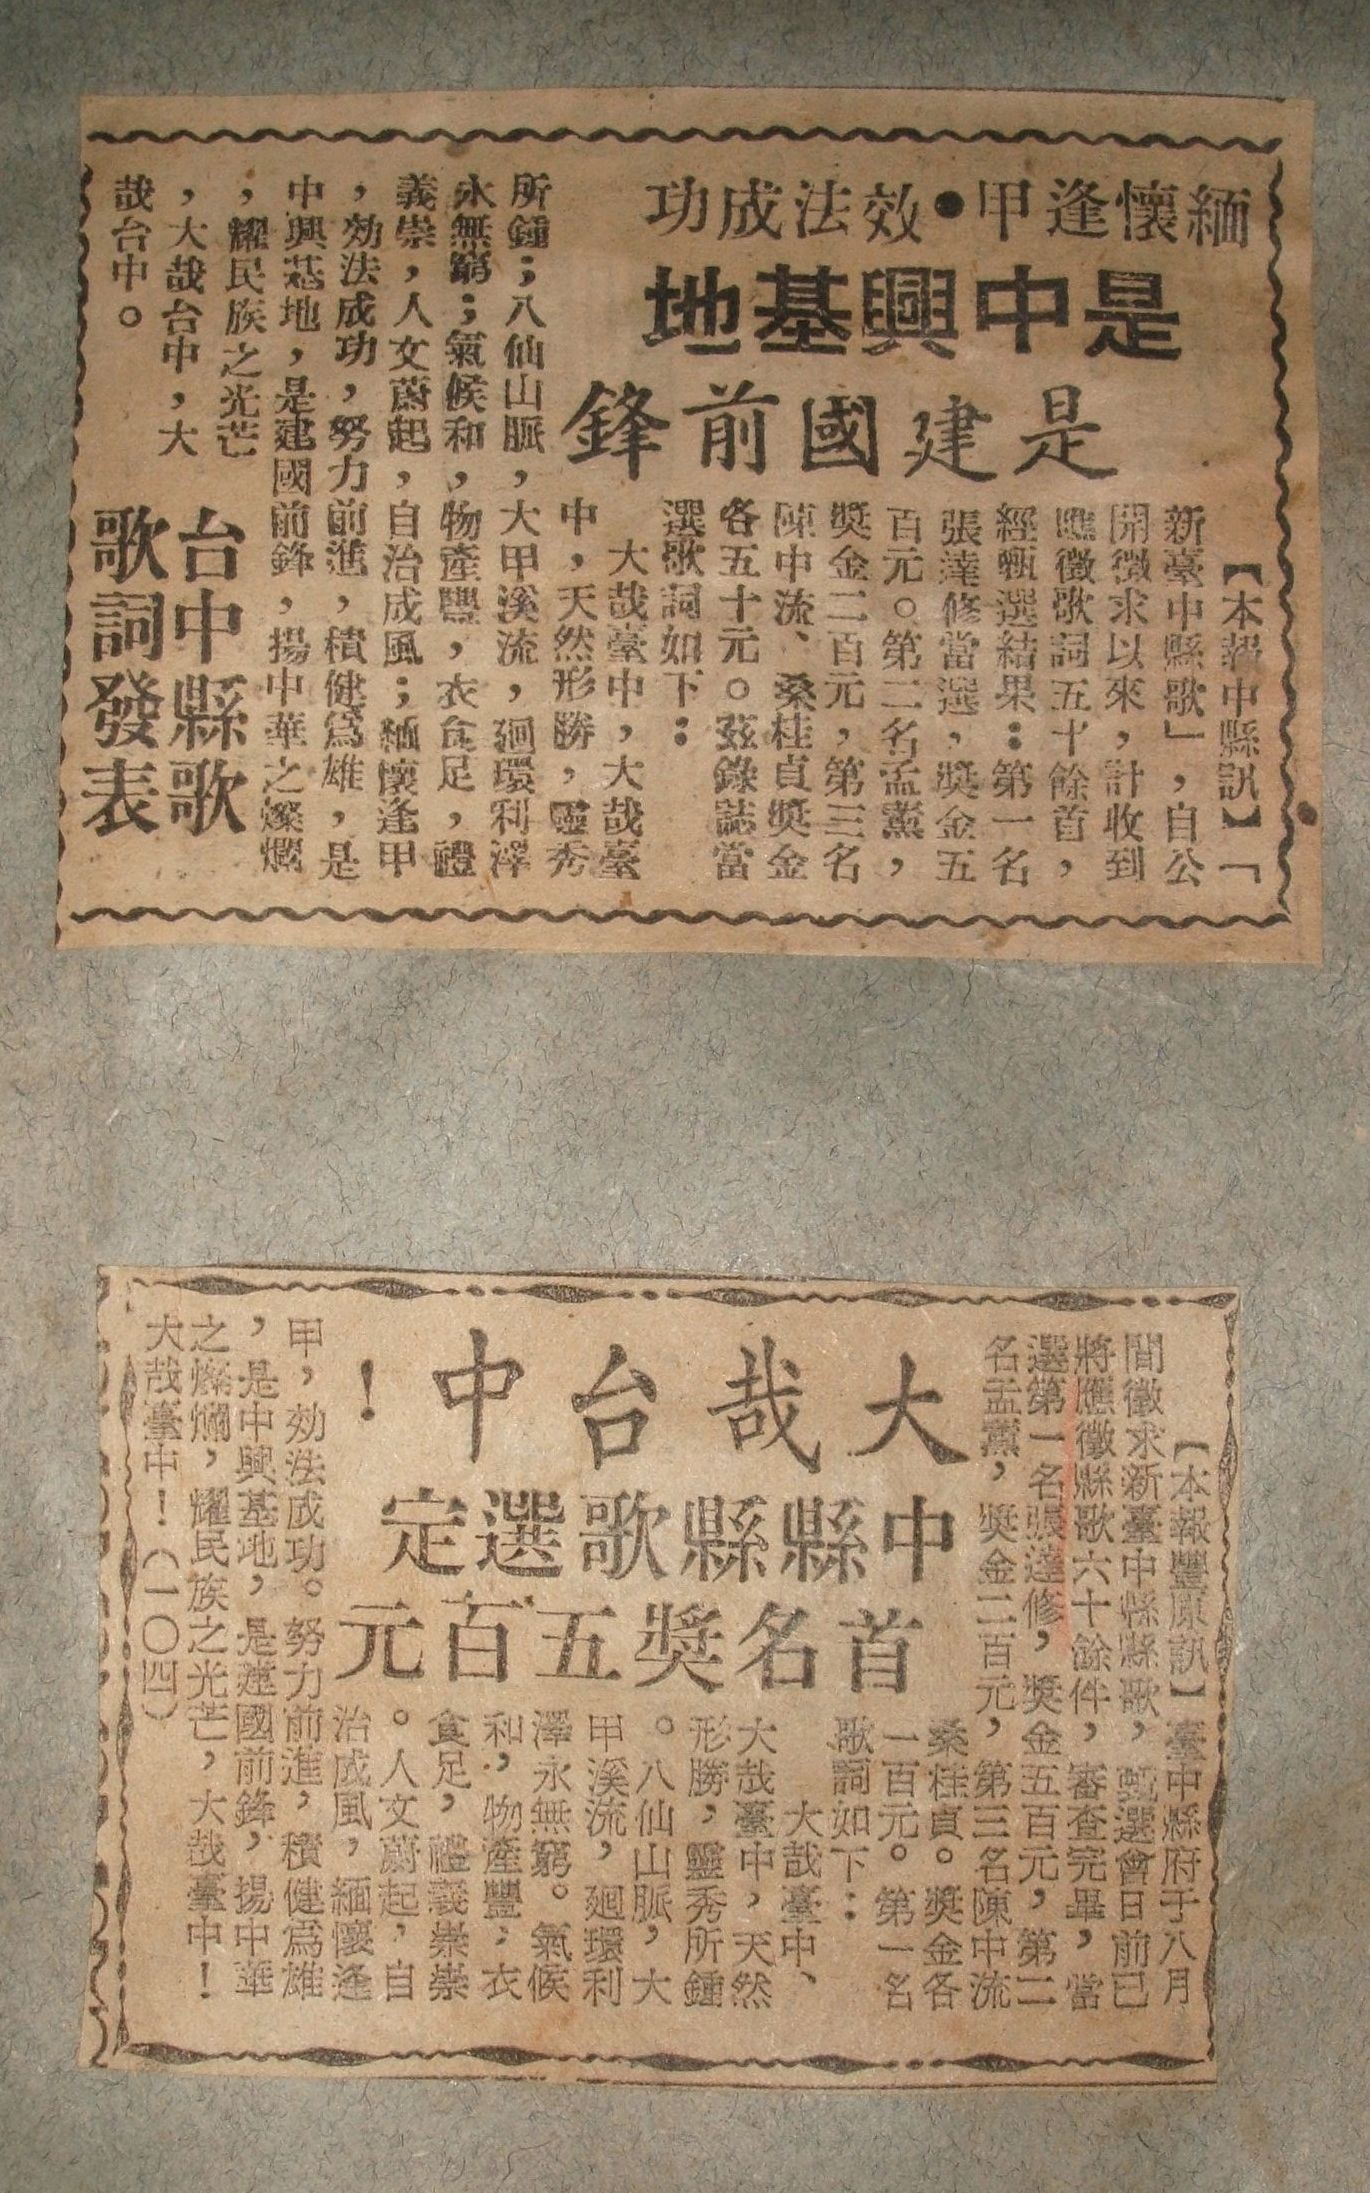 緬懷逢甲•效法成功
是中興基地
是建國前鋒
台中縣歌
歌詞發表
【本報中縣訊】「
新臺中縣歌」，自公
開徵求以來，計收到
應徵歌詞五十餘首，
經甄選結果：第一名
張達修當選，獎金五
百元。第二名孟薰，
獎金二百元，第三名
陳中流、桑桂貞獎金
各五十元。茲錄誌當
選歌詞如下：
大哉臺中，大哉臺
中，天然形勝，靈秀
所鍾；八仙山脈，大甲溪流，廻環利澤
永無窮；氣候和，物產豐，衣食足，禮
義崇，人文蔚起，自治成風；緬懷逢甲
，効法成功，努力前進，積健爲雄，是
中興基地，是建國前鋒，揚中華之燦爛
，耀民族之光芒
，大哉台中，大
哉台中。
大哉台中！
中縣縣歌選定
首名獎五百元
【本報豐原訊】臺中縣府于八月
間徵求新臺中縣縣歌，甄選會日前已
將應徵縣歌六十餘件，審查完畢，當
選第一名張達修，獎金五百元，第二
名孟薰，獎金二百元，第三名陳中流
桑桂貞。獎金各
一百元。第一名
歌詞如下：
大哉臺中、
大哉臺中，天然
形勝，靈秀所鍾
。八仙山脈，大
甲溪流，廻環利
澤永無窮。氣候
和，物產豐；衣
食足，禮義崇崇
。人文蔚起，自
治成風，緬懷逢
甲，効法成功。努力前進，積健爲雄
，是中興基地，是建國前鋒，揚中華
之燦爛，耀民族之光芒，大哉臺中！
大哉臺中！（一〇四）